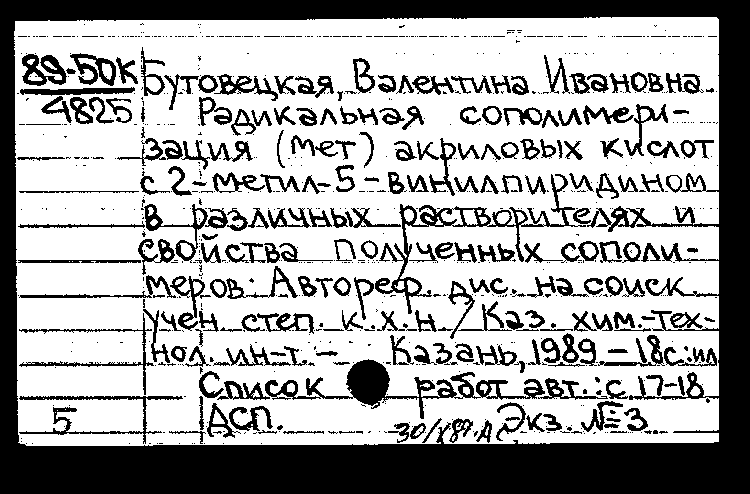 89-50К Бутовецкая, Валентина Ивановна.
4825 Радикальная сополимери-
зация (мет) акриловых кислот
с 2-метил-5-винилпиридином
в различных растворителях и
свойства полученных сополи-
меров: Автореф. дис. на соиск.
учен степ. к.х.н / Каз. хим.-тех-
нол. ин-т. - Казань, 1989 - 18с.:ил
Список работ авт.: с. 17-18.
5 ДСП. Экз. № 3